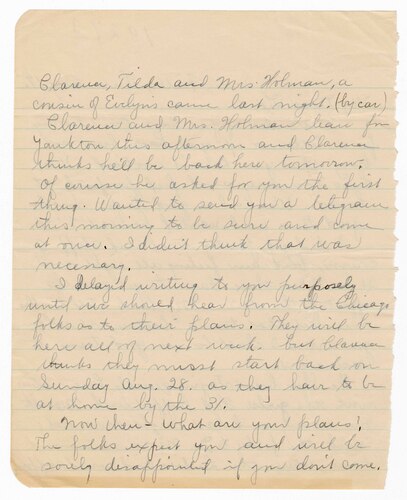 Clarence, Tilda and Mrs. Holman, a
cousin of Evelyns came last night. (by car)
Clarence and Mrs. Holman leave for
Yankton this afternoon and Clarence
thinks he'll be back here tomorrow.
Of course he asked for you the first
thing. Wanted to send you a telegram
this morning to be sure and come
at once. I didn't think that was
necessary.
I delayed writing to you purposely
until we should hear from the Chicago
folks as to their plans. They will be
here all of next week. but Clarence
thinks they must start back on
Sunday Aug. 28. as they have to be
at home by the 31.
Now then - What are your plans?
The folks expect you and will be
sorely disappointed if you don't come.